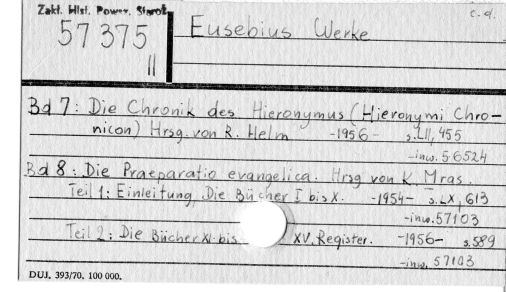 Zakł. Hist. Powsz. Staroż.
c.d.
57 375
II
Eusebius Werke
Bd 7: Die Chronik des Hieronymus (Hieronymi Chro-
nicon) Hrsg. von R. Helm -1956- s. LII, 455
-inw. 56524
Bd 8: Die Praeparatio evangelica. Hrsg von K. Mras.
Teil 1: Einleitung, Die Bücher I bis X. -1954- s. LX, 613
-inw. 57103
Teil 2: Die Bücher XI bis XV, Register. -1956- s. 589
-inw. 57103
DUJ. 393/70. 100 000.